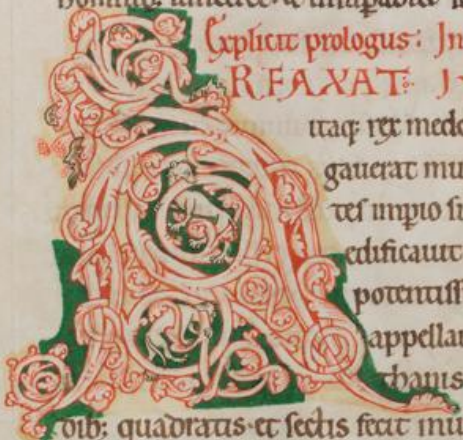 Explicit prologus: In
ARFAXAT:
itaq; rex medo
gauerat mu
tes impio su
edificauit
potentiss
appellau
thanis
dib; quadratis et sectis fecit mu